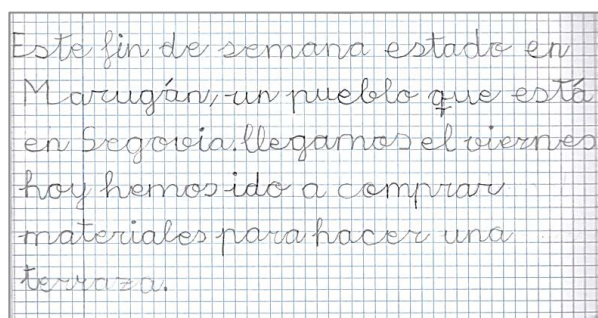 Este fin de semana estado en
Marugán, un pueblo que está
en Segovia. llegamos el viernes
hoy hemos ido a comprar
materiales para hacer una
terraza.